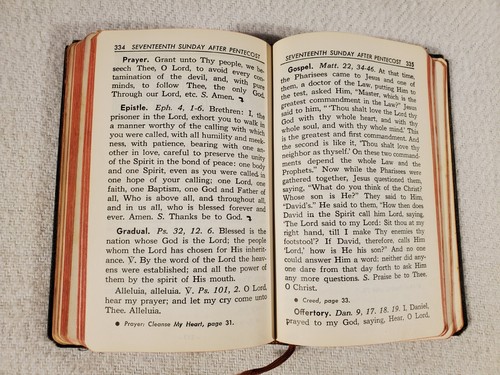 334 SEVENTEENTH SUNDAY AFTER PENTECOST
Prayer. Grant unto Thy people, we be-
seech Thee, O Lord, to avoid every con-
tamination of the devil, and, with pure
minds, to follow Thee, the only God.
Through our Lord, etc. S. Amen.
Epistle. Eph. 4, 1-6. Brethren: I, the
prisoner in the Lord, exhort you to walk in
a manner worthy of the calling with which
you were called, with all humility and meek-
ness, with patience, bearing with one an-
other in love, careful to preserve the unity
of the Spirit in the bond of peace: one body
and one Spirit, even as you were called in
one hope of your calling; one Lord, one
faith, one Baptism, one God and Father of
all, Who is above all, and throughout all,
and in us all, who is blessed forever and
ever. Amen. S. Thanks be to God.
Gradual. Ps. 32, 12. 6. Blessed is the
nation whose God is the Lord; the people
whom the Lord has chosen for His inherit-
ance. V. By the word of the Lord the heav-
ens were established; and all the power of
them by the spirit of His mouth.
Alleluia, alleluia. V. Ps. 101, 2. O Lord,
hear my prayer; and let my cry come unto
Thee. Alleluia.
• Prayer: Cleanse My Heart, page 31.
SEVENTEENTH SUNDAY AFTER PENTECOST 335
Gospel. Matt. 22, 34-46. At that time,
the Pharisees came to Jesus and one of
them, a doctor of the Law, putting Him to
the test, asked Him, "Master, which is the
greatest commandment in the Law?" Jesus
said to him, "'Thou shalt love the Lord thy
God with thy whole heart, and with thy
whole soul, and with thy whole mind.' This
is the greatest and first commandment. And
the second is like it, 'Thou shalt love thy
neighbor as thyself.' On these two command-
ments depend the whole Law and the
Prophets." Now while the Pharisees were
gathered together, Jesus questioned them,
saying, "What do you think of the Christ?
Whose son is He?" They said to Him,
"David's." He said to them, "How then does
David in the Spirit call him Lord, saying,
'The Lord said to my Lord: Sit thou at my
right hand, till I make Thy enemies thy
footstool'? If David, therefore, calls Him
'Lord,' how is He his son?" And no one
could answer Him a word; neither did any-
one dare from that day forth to ask Him
any more questions. S. Praise be to Thee,
O Christ.
• Creed, page 33.
Offertory. Dan. 9, 17. 18. 19. I, Daniel,
prayed to my God, saying, Hear, O Lord,